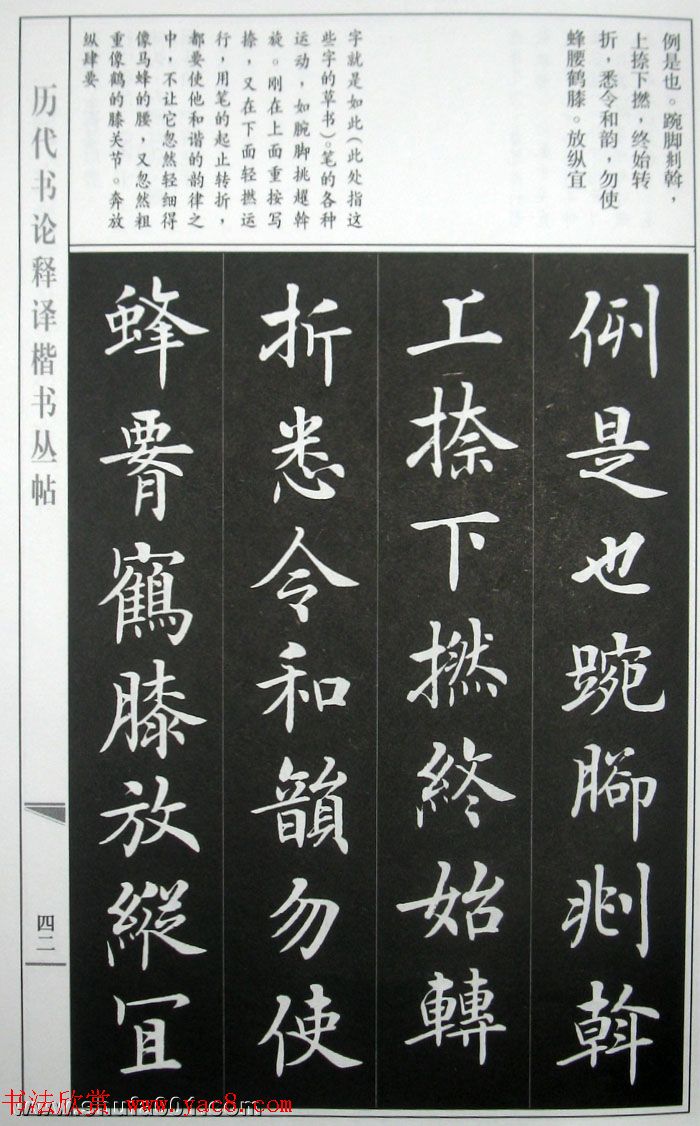 例是也。踠脚斡，
上捺下撚，终始转
折，悉令和韵，勿使
蜂腰鹤膝。放纵宜
字就是如此（此处指这
些字的草书）。笔的各种
运动，如腕脚挑趯斡
旋。刚在上面重按写
捺，又在下面轻撚运
行，用笔的起止转折，
都要使他和谐的韵律之
中，不让它忽然轻细得
像马蜂的腰，又忽然粗
重像鹤的膝关节。奔放
纵肆要
例是也踠腳斡
上捺下撚終始轉
折悉令和韻勿使
蜂腰鶴膝放縱宜
历代书论释译楷书丛帖
四二
书法欣赏 www.yac8.com